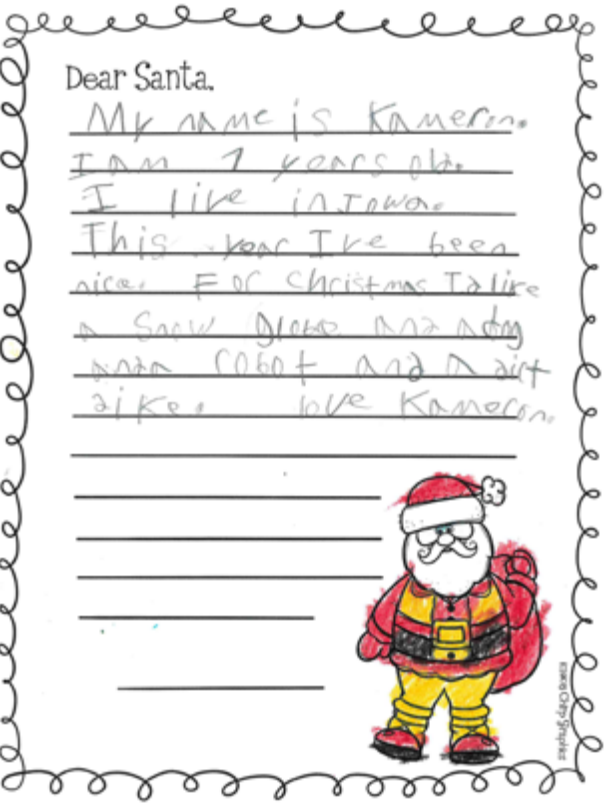 Dear Santa,
My name is Kameron.
I am 7 years old.
I live in Iowa.
This year I've been
nice. For Christmas I'd like
a Snow Globe and a dog
and a robot and a dirt
bike. love Kameron.